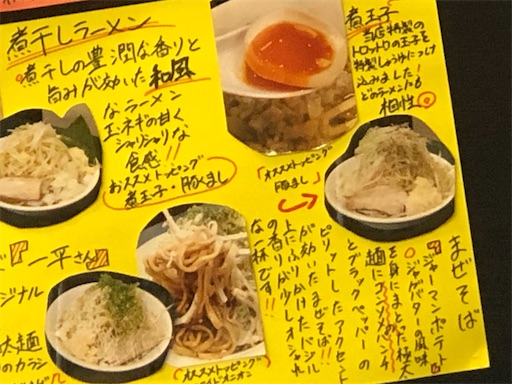 煮干しラーメン
煮干しの豊潤な香りと
旨みが効いた和風
なラーメン
玉ネギの甘く
シャリシャリな
食感!!
おススメトッピング
煮玉子・豚ほまし
煮玉子
当店特製の
トロットロの玉子を
特製しょうゆにつけ
込みました!
どのラーメンにも
相性◎
「オススメトッピング
豚まし」
まぜそば
"ジャーマンポテト"
○ジャガバターの風味
を身にまとった極太
麺にアンチョビのパンチ
とブラックペッパーの
ピリットしたアクセント
が効いたまぜそば!!
上にふりかけたバジル
の香りが少しオシャレ
な一杯です!!
一平さん
ジナル
太麺
のカラシ
(オススメトッピング